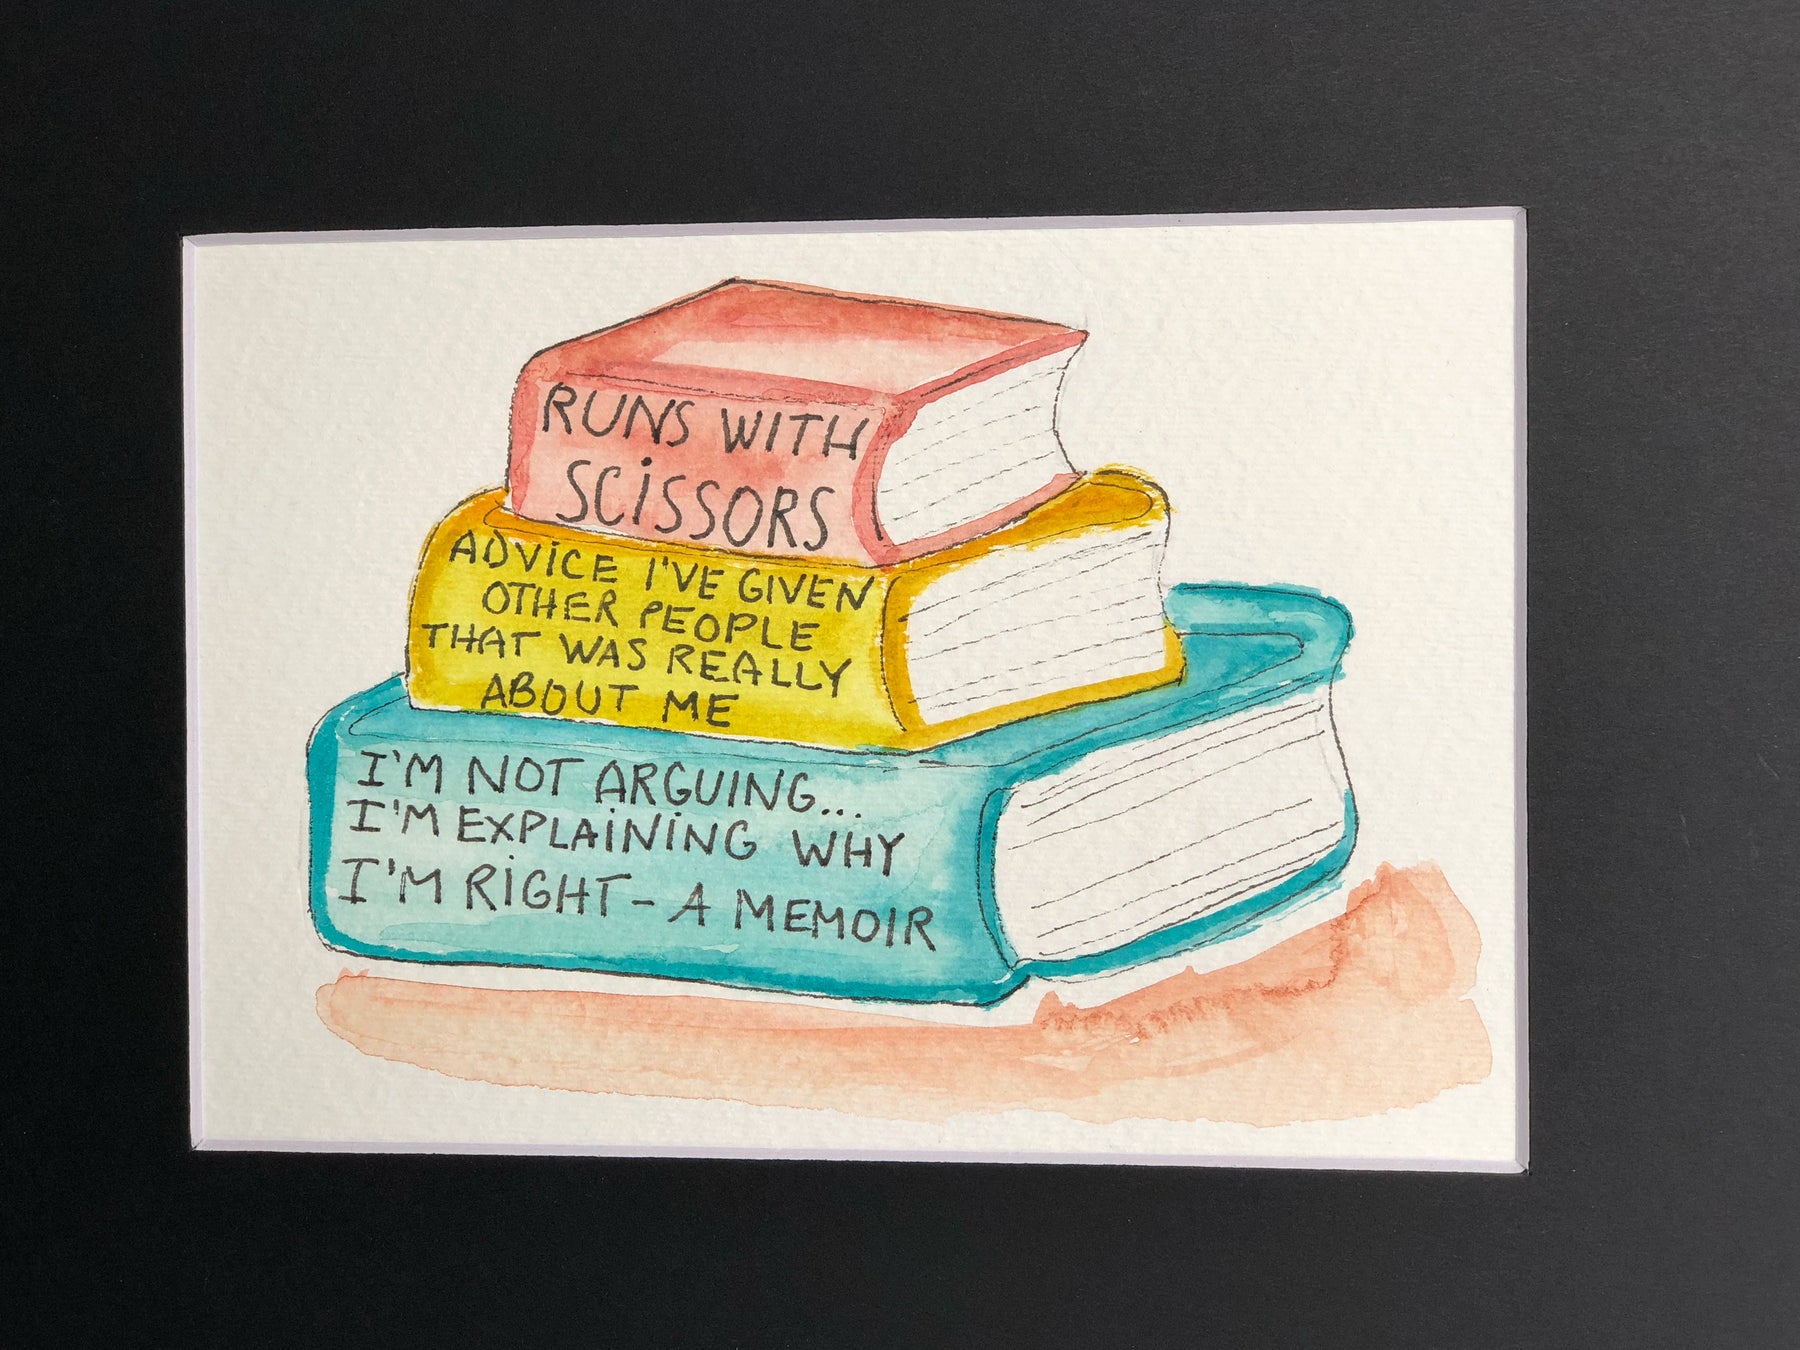 RUNS WITH
SCISSORS
ADVICE I'VE GIVEN
OTHER PEOPLE
THAT WAS REALLY
ABOUT ME
I'M NOT ARGUING...
I'M EXPLAINING WHY
I'M RIGHT - A MEMOIR